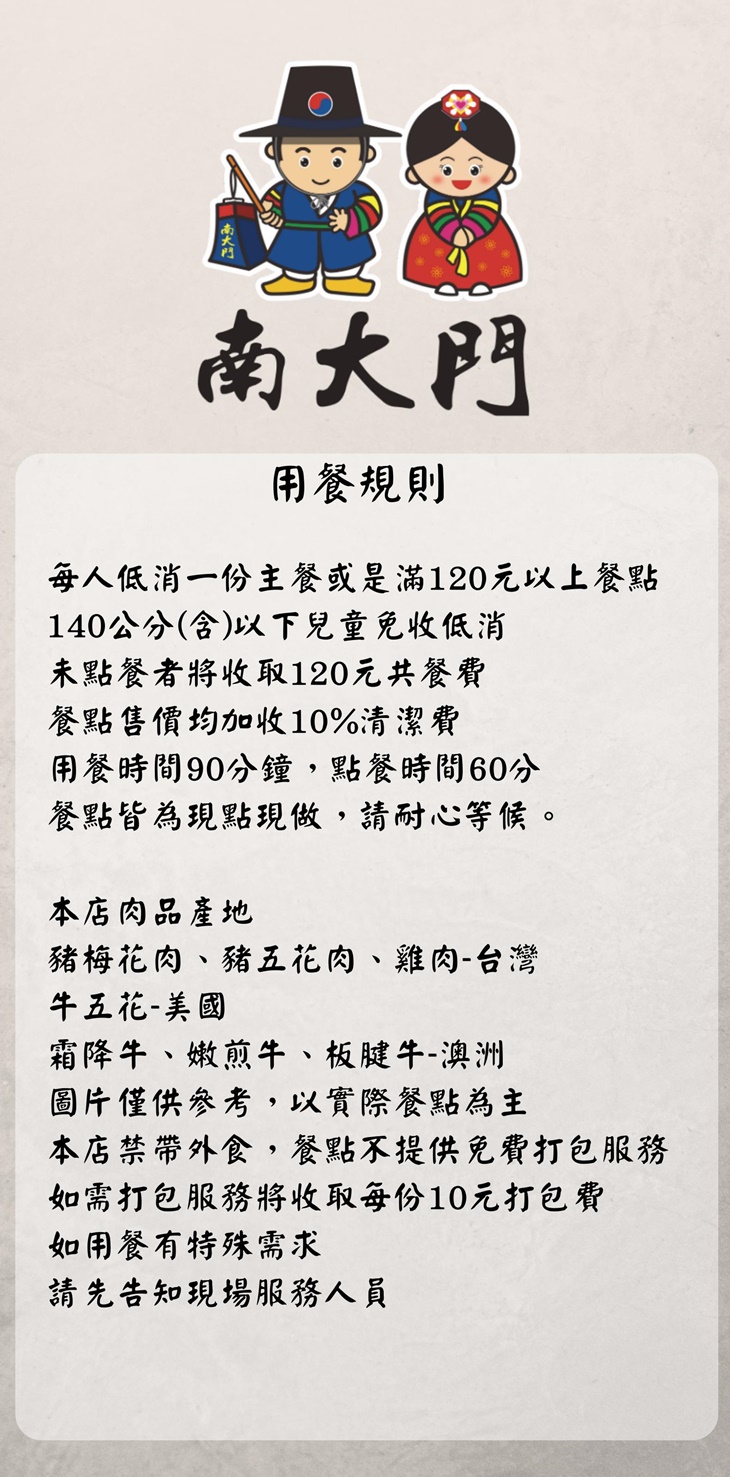 南大門
南大門
用餐規則
每人低消一份主餐或是滿120元以上餐點
140公分(含)以下兒童免收低消
未點餐者將收取120元共餐費
餐點售價均加收10%清潔費
用餐時間90分鐘，點餐時間60分
餐點皆為現點現做，請耐心等候。
本店肉品產地
豬梅花肉、豬五花肉、雞肉-台灣
牛五花-美國
霜降牛、嫩煎牛、板腱牛-澳洲
圖片僅供參考，以實際餐點為主
本店禁帶外食，餐點不提供免費打包服務
如需打包服務將收取每份10元打包費
如用餐有特殊需求
請先告知現場服務人員